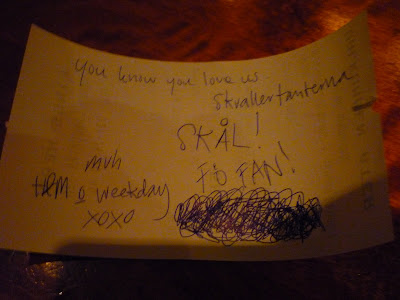 you know you love us
Skvallertanterna
SKÅL!
FÖ FAN!
mvh
HRM o weekday
xoxo